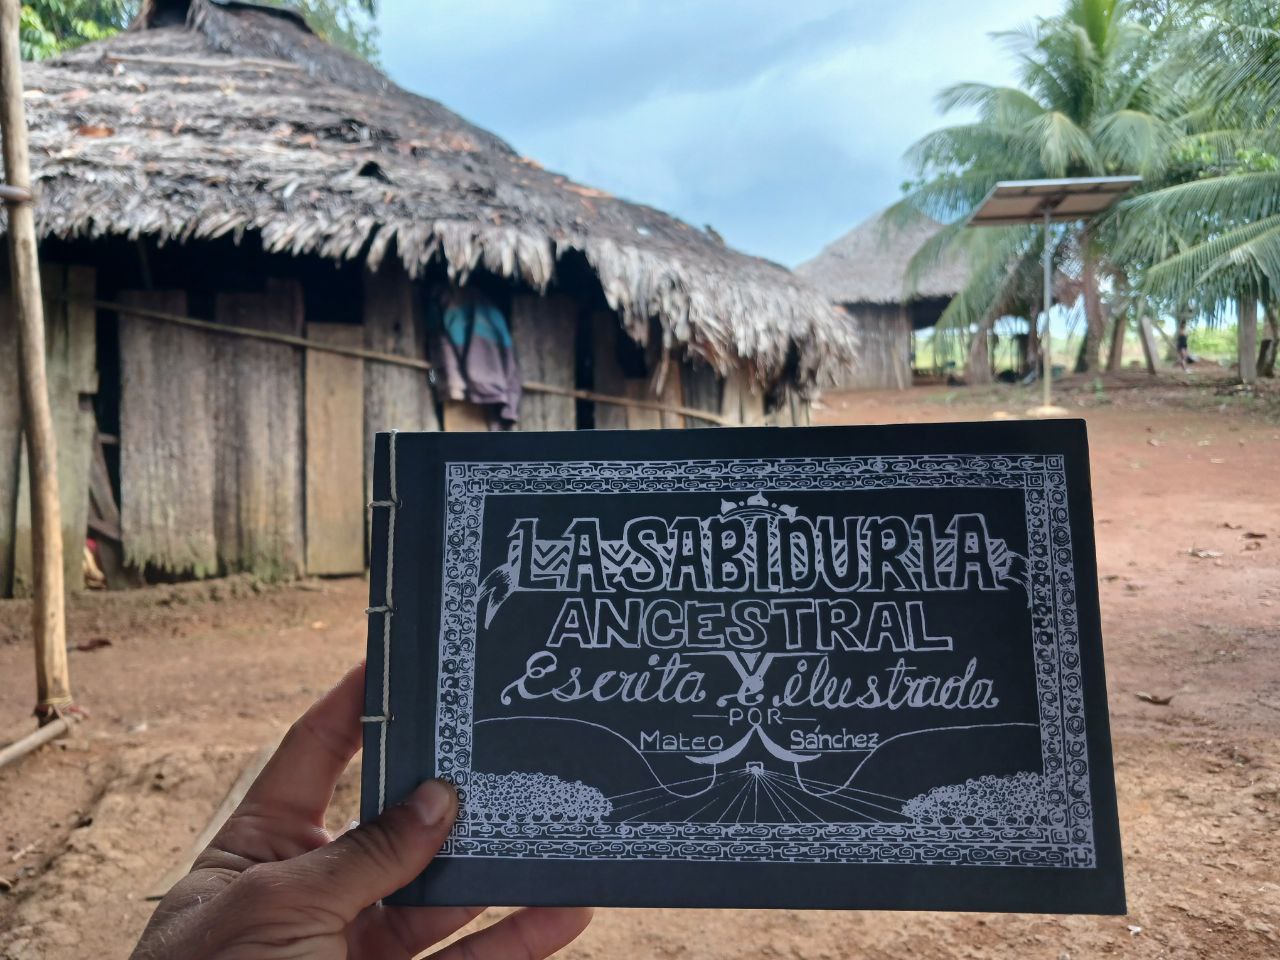 LA SABIDURIA
ANCESTRAL
Escrita e ilustrada
POR
Mateo Sánchez